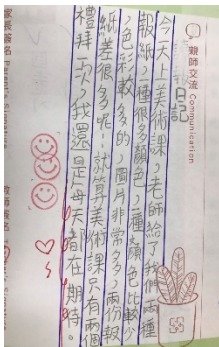 親師交流 Communication
日記
今天上美術課,老師給了我們兩種
報紙,一種很多顏色,一種顏色比較少
,色彩較多的,圖片非常多,兩份報
紙差很多呢!就算美術課只有兩個
禮拜一次,我還是每天都在期待。
家長簽名 Parent's Signature